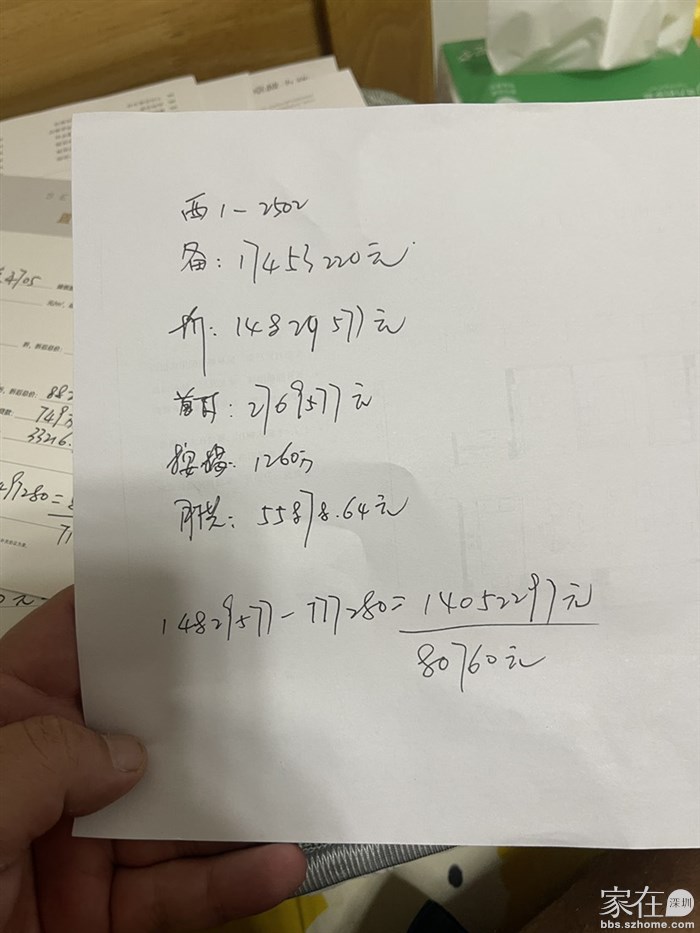 西1-2502
备：17453220元
折：14829577元
首付：2769577元
按揭：1260万
月供：55878.64元
14829577-777280=14052297元
80760元
4705
749万
33216.
280=
家在深圳
bbs.szhome.com